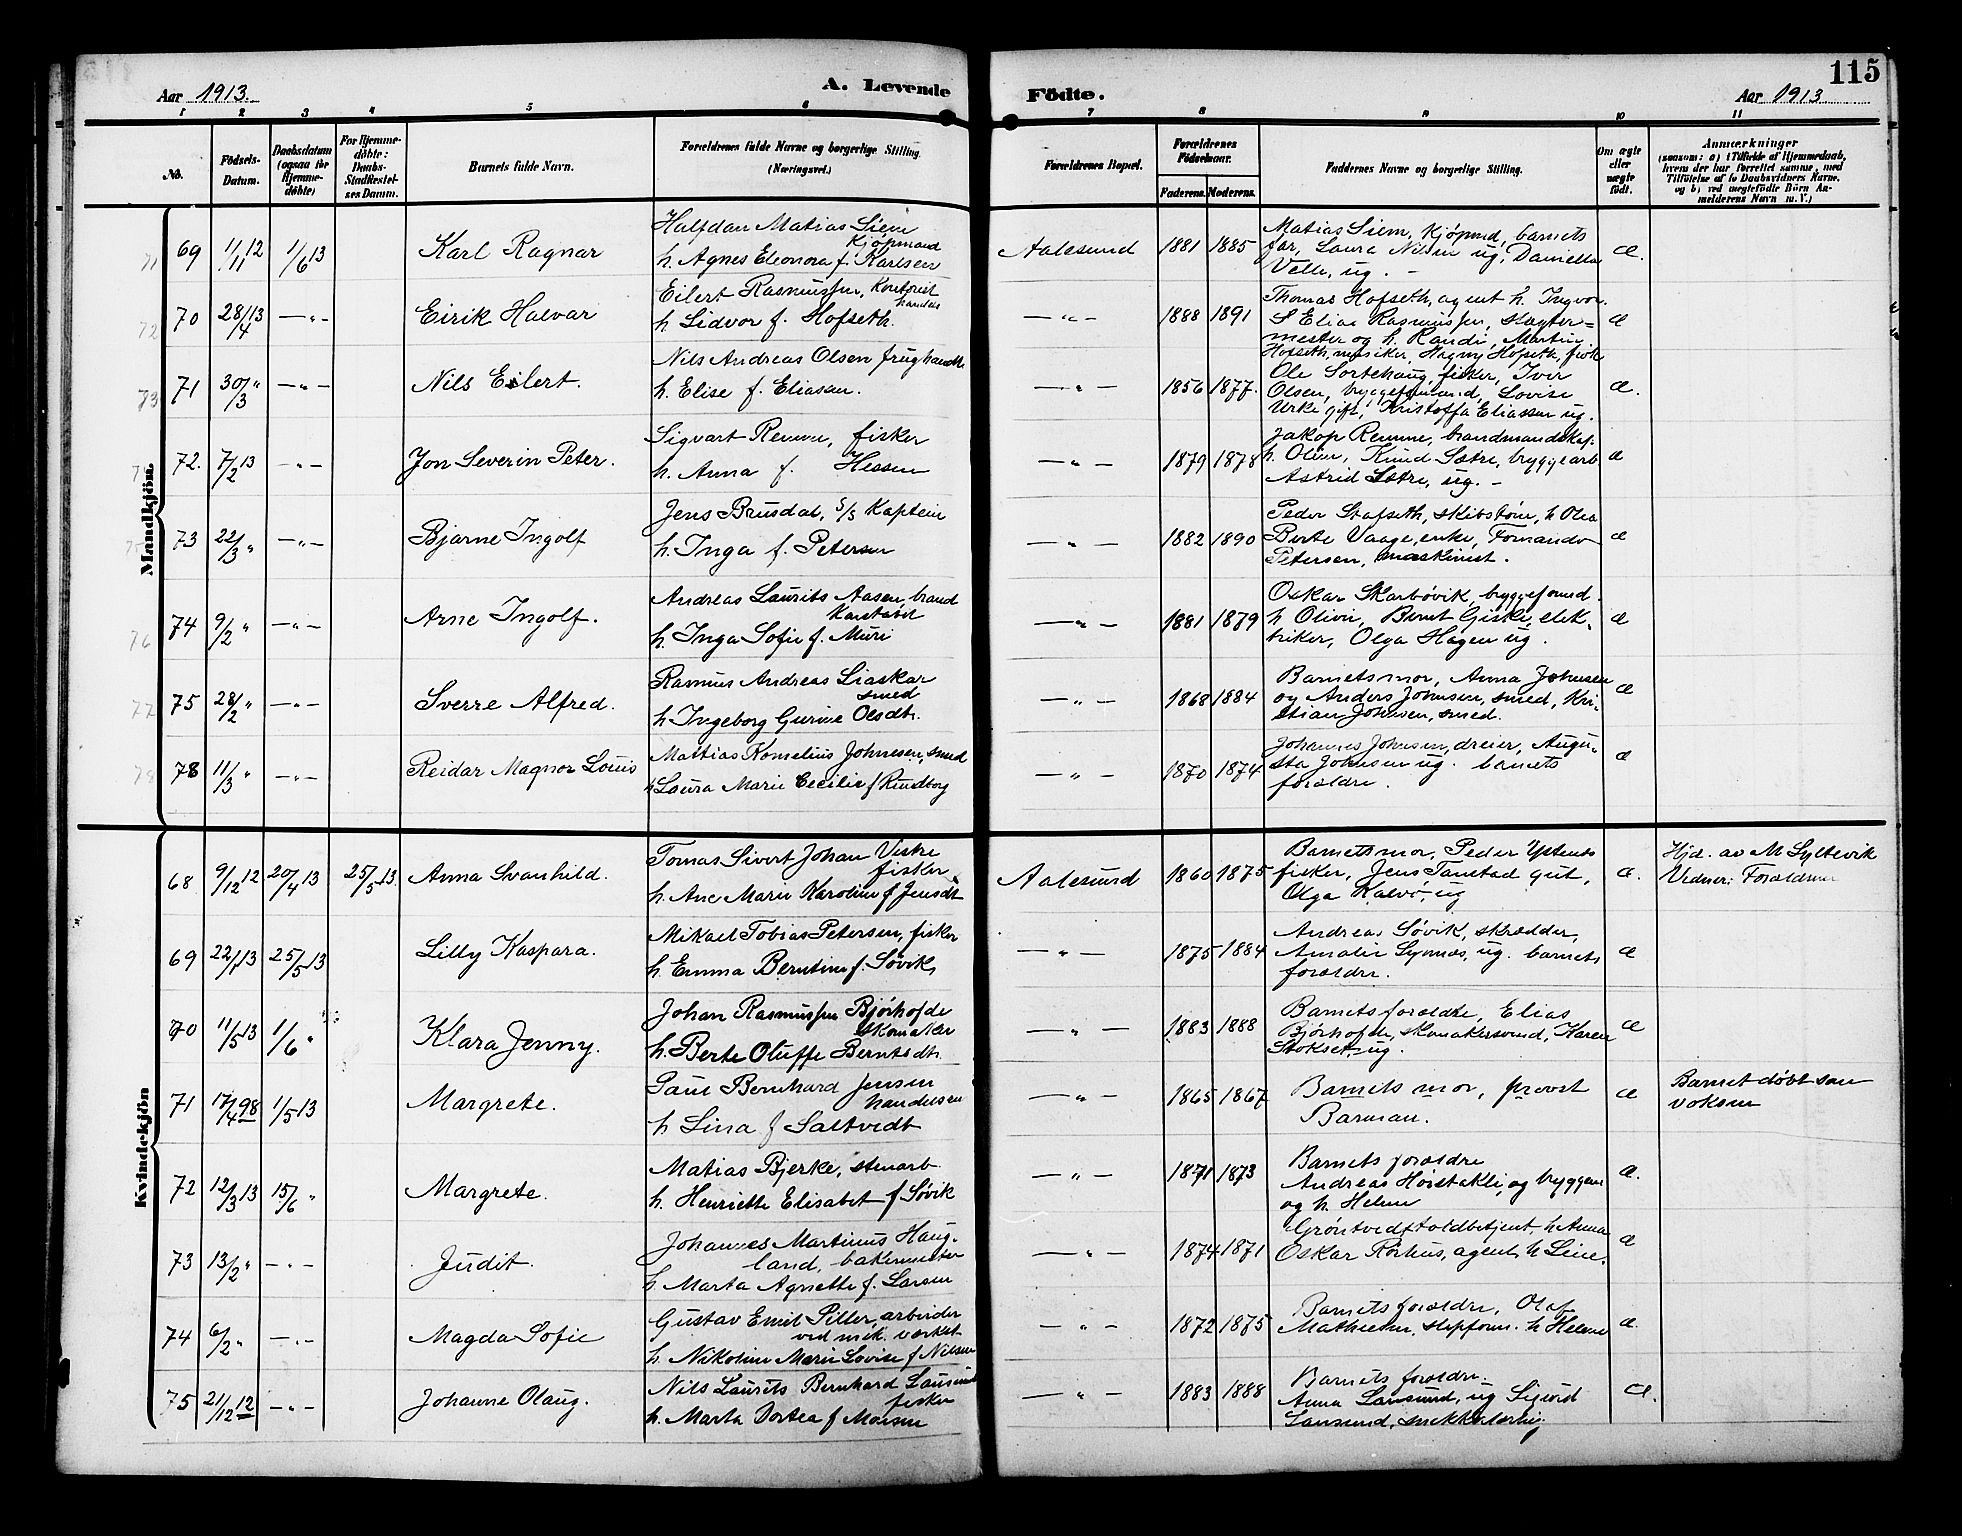 115
Aar 1913.
A. Levende
Fødte.
Aar 1913
1 2 3 4 5 6 7 8 9 10 11
No.
Fødsels-
Datum.
Daabsdatum
(ogsaa for
Hjemme-
døbte)
For Hjemme-
døbte:
Daabs-
Stadfæstel-
ses Datum.
Barnets fulde Navn.
Forældrenes fulde Navne og borgerlige Stilling.
(Næringsvei.)
Forældrenes Bopæl.
Forældrenes
Fødselsaar.
Faderens. Moderens.
Faddernes Navne og borgerlige Stilling.
Om ægte
eller
uægte
født.
Anmærkninger
(saasom: a) i Tilfælde af Hjemmedaab,
hvem der har forrettet samme, med
Tilføielse af to Daabsvidners Navne,
og b) ved uægtefødte Børn An-
melderens Navn m. V.)
Mandkjøn
69 1/11 12 1/6 13 Karl Ragnar
Halfdan Matias Siem
Kjøpmand
h. Agnes Eleonora f. Karlsen
Aalesund 1881 1885
Matias Siem, Kjøpmd, barnets
far, Laura Nilsen ug, Daniella
Velle, ug. -
Æ.
70 28/4 13 — „ — Eirik Halvar
Eilert Rasmussen, Kontorist
h. Sidvor f. Hofseth.
— „ — 1888 1891
Thomas Hofseth, agent h. Ingvor.
S Elias Rasmussen, slagter-
mester og h. Randi, Martin
Hofseth, musiker, Hagny Hofseth, frøk
Æ
71 30/3 „ — „ — Nils Eilert.
Nils Andreas Olsen frugthandl
h. Elise f. Eliassen.
— „ — 1856 1877.
Ole Sortehaug fisker, Iver
Olsen, bryggeformand, Lovise
Urke gift, Kristoffa Eliassen ug.
Æ.
72. 7/2 13 — „ — Jon Severin Peter.
Sigvart Remme, fisker
h. Anna f. Hessen
— „ — 1879 1878
Jakop Remme, brandmandskap.
h. Oline, Knud Sætre, bryggearb.
Astrid Sætre, ug. -
Æ
73 22/3 „ — „ — Bjarne Ingolf
Jens Brusdal, S/S Kaptein
h. Inga f. Petersen
— „ — 1882 1890
Peder Stafseth, skibstøm, h Olea
Berte Vaage, enke, Fernando
Petersen, maskinist.
Æ
74 9/2 „ — „ — Arne Ingolf.
Andreas Laurits Aasen, brand
Konstabel
h. Inga Sofie f. Muri
— „ — 1881 1879
Oskar Skarbøvik, bryggeformd.
h Olivie, Bernt Giske, elek-
triker, Olga Hagen ug.
Æ
75 28/2 „ — „ — Sverre Alfred.
Rasmus Andreas Liaskar
smed
h. Ingeborg Gurine Olsdtr.
— „ — 1868 1884
Barnets mor, Anna Johnsen
og Anders Johnsen, smed, Kri-
stian Johnsen, smed.
Æ
78 11/3 „ — „ — Reidar Magnor Louis
Mattias Kornelius Johnesen, smed
h Laura Marie Cecilie f Rundborg
— „ — 1870 1874
Johannes Johnsen, dreier, Augu-
sta Johnsen ug. barnets
forældre.
Æ
Kvindekjøn
68 9/12 12 20/4 13 25/5 13. Anna Svanhild.
Tomas Sivert Johan Vestre
fisker
h. Ane Marie Karoline f Jensdt
Aalesund 1860 1875
Barnets mor, Peder
fisker, Jens Tanstad gut,
Olga Kalvø, ug
Æ.
Hjd. av M Syltevik
Vidner: Forældrene
69 22/1 13 25/5 13 Lilly Kaspara.
Mikael Tobias Petersen, fisker
h. Emma Berntine f. Søvik,
— „ — 1875 1884
Andreas Søvik, skrædder,
Amalie Synnes, ug. barnets
forældre.
Æ
70 11/5 13 1/6 „ Klara Jenny.
Johan Rasmussen Bjørhofde
Skomaker
h. Berte Oluffe Berntsdtr
— „ — 1883 1888
Barnets forældre, Elias
Bjørhofde, skomakersvend, Karen
Stokset, ug.
Æ
71 17/4 98 1/5 13 Margrete.
Paul Bernhard Jensen
handlsm
h Lina f Saltvedt
— „ — 1865 1867
Barnets mor, provst
Barman.
Æ
Barnet døbt som
voksen
72 12/3 13 15/6 „ Margrete.
Matias Bjerke, stenarb
h. Henriette Elisabet f Søvik
— „ — 1871 1873
Barnets forældre
Andreas Horstakli, og bryggem
og h. Helene
Æ.
73 13/2 „ — „ — Judit.
Johannes Martinus Haug-
land, bakermester
h. Marta Agnethe f. Larsen
— „ — 1874 1871
Grøntvedt toldbetjent, h Anna
Oskar Rørhus, agent h Line.
Æ
74 6/2 „ — „ — Magda Sofie
Gustav Emil Piller, arbeider
ved mek. verkst
h. Nikoline Marie Lovise f Nilsen
— „ — 1872 1875
Barnets forældre, Olaf
Mathiesen, slipform. h Helene
Æ.
75 21/12 12 — „ — Johanne Olaug.
Nils Laurits Bernhard Lausund
fisker
h. Marta Dortea f Monsen
— „ — 1883 1888
Barnets forældre.
Anna Lausund, ug Sigurd
Lausund, snekkerlærling
Æ.